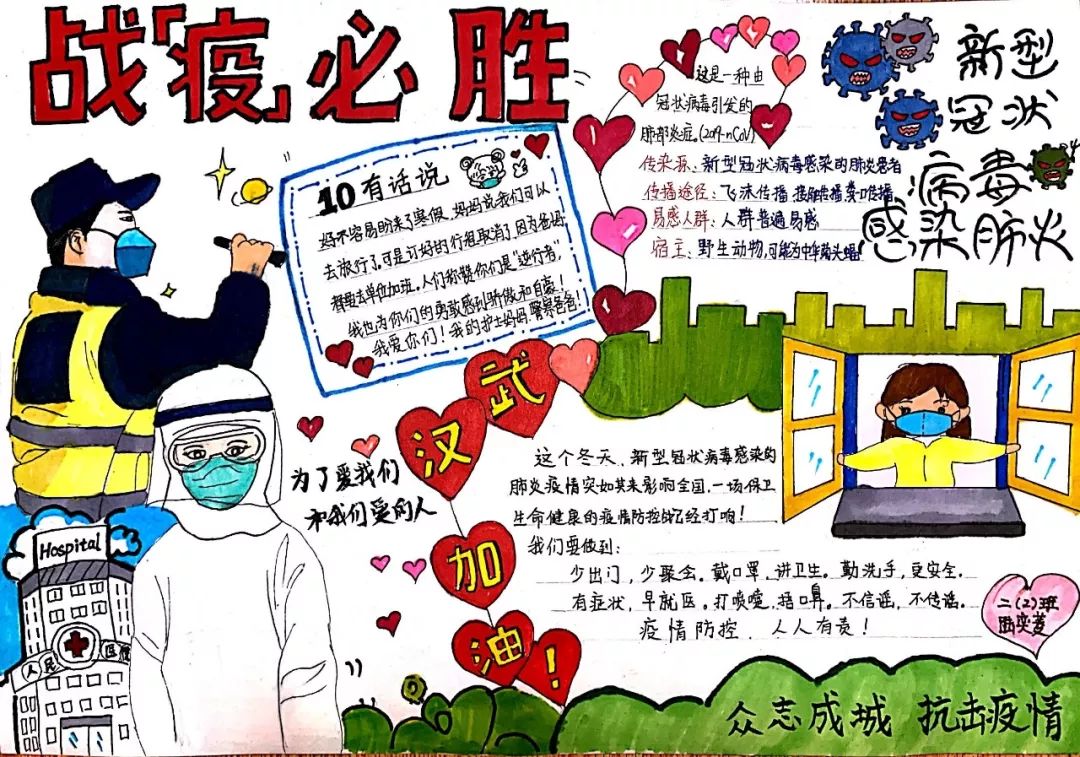 战「疫」必胜
10有话说
好不容易盼来了寒假，妈妈说我们可以
去旅行了。可是订好的行程取消了，因为爸妈
都要去单位加班。人们称赞你们是“逆行者”，
我也为你们的勇敢感到骄傲和自豪！
我爱你们！我的护士妈妈，警察爸爸！
这是一种由
冠状病毒引发的
肺部炎症。(2019-nCoV)
传染源：新型冠状病毒感染的肺炎患者
传播途径：飞沫传播 接触传播 粪口传播
易感人群：人群普遍易感
宿主：野生动物，可能为中华菊头蝠
新型
冠状
病毒
感染肺炎
武
汉
加
油
！
为了爱我们
和我们爱的人
这个冬天，新型冠状病毒感染的
肺炎疫情突如其来影响全国，一场保卫
生命健康的疫情防控战已经打响！
我们要做到：
少出门，少聚会。戴口罩，讲卫生。勤洗手，更安全。
有症状，早就医。打喷嚏，捂口鼻。不信谣，不传谣。
疫情防控，人人有责！
二（2）班
Hospital
人民
医院
众志成城 抗击疫情